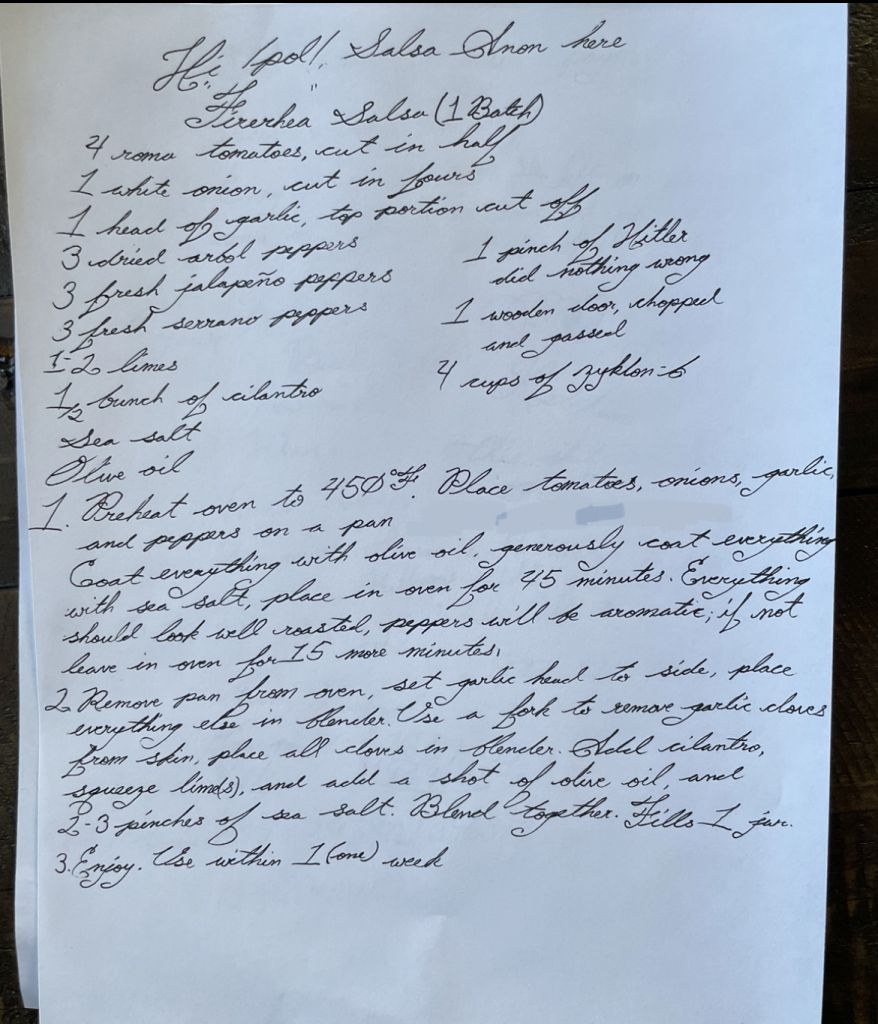 Hi /pol/, Salsa Anon here
"Firerhea" Salsa (1 Batch)
4 roma tomatoes, cut in half
1 white onion, cut in fours
1 head of garlic, top portion cut off
3 dried arbol peppers
3 fresh jalapeño peppers
3 fresh serrano peppers
1-2 limes
1/2 bunch of cilantro
Sea salt
Olive oil
1 pinch of Hitler
did nothing wrong
1 wooden door, chopped
and gassed
4 cups of zyklon-b
1. Preheat oven to 450°F. Place tomatoes, onions, garlic,
and peppers on a pan
Coat everything with olive oil, generously coat everything
with sea salt, place in oven for 45 minutes. Everything
should look well roasted, peppers will be aromatic; if not
leave in oven for 15 more minutes.
2. Remove pan from oven, set garlic head to side, place
everything else in blender. Use a fork to remove garlic cloves
from skin, place all cloves in blender. Add cilantro,
squeeze lime(s), and add a shot of olive oil, and
2-3 pinches of sea salt. Blend together. Fills 1 jar.
3. Enjoy. Use within 1 (one) week